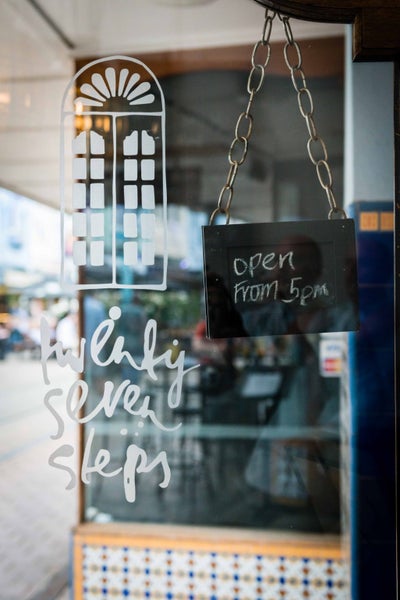 twenty
seven
steps
open
From 5pm